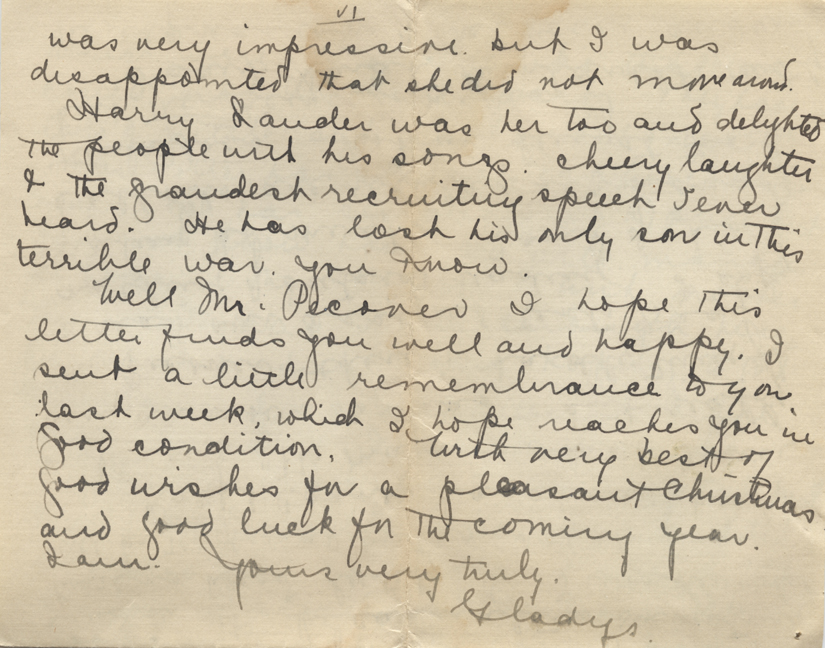 VI
was very impressive. but I was
disappointed that she did not move around.
Harry Lauder was her too and delighted
the people with his songs. cheery laughter
& the grandest recruiting speech I ever
heard. He has lost his only son in this
terrible war. you know.
Well Mr. Pecover I hope this
letter finds you well and happy. I
sent a little remembrance to you
last week, which I hope reaches you in
good condition. With very best of
good wishes for a pleasant Christmas
and good luck for the coming year.
I am. yours very truly.
Gladys.